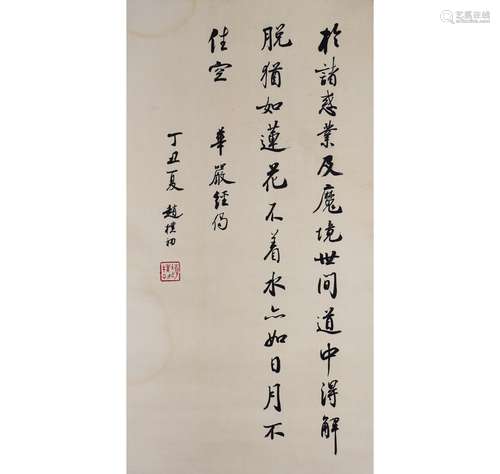 於諸惑業及魔境世間道中得解
脱猶如蓮花不着水亦如日月不
住空
華嚴經偈
丁丑夏 趙樸初